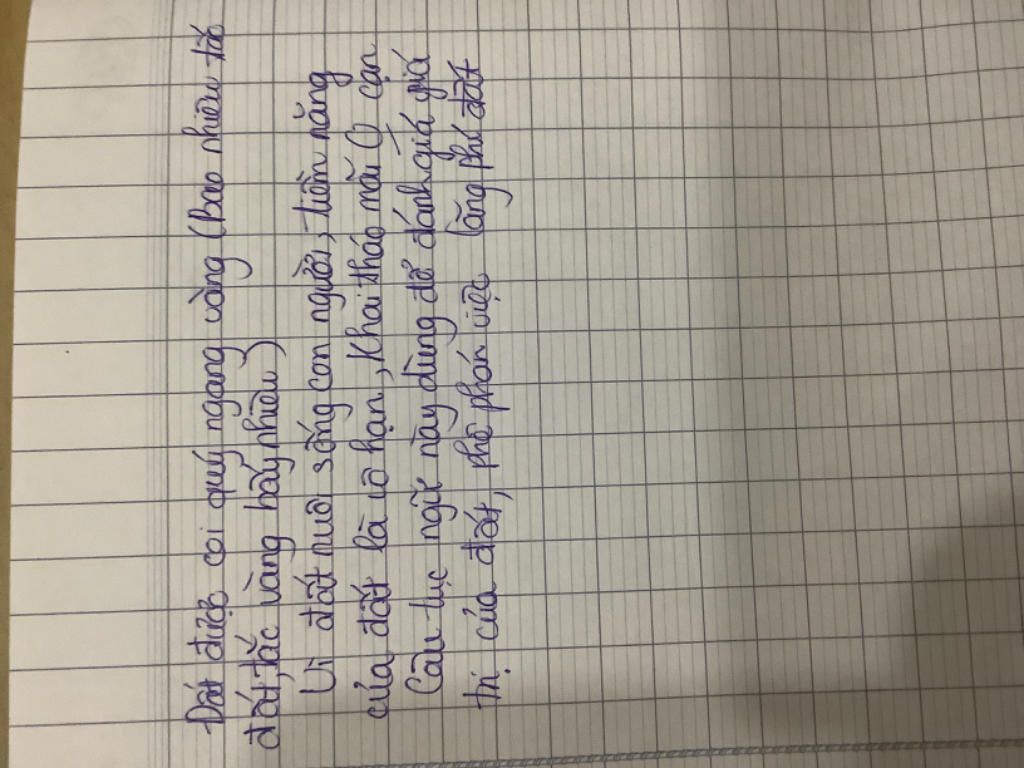 Đất được coi quý ngang vàng (bao nhiêu tấc
đất, tấc vàng bấy nhiêu)
Vì đất nuôi sống con người, tiềm năng
của đất là vô hạn, khai thác mãi 0 cạn
Câu tục ngữ này dùng để đánh giá giá
trị của đất, phê phán việc lãng phí đất